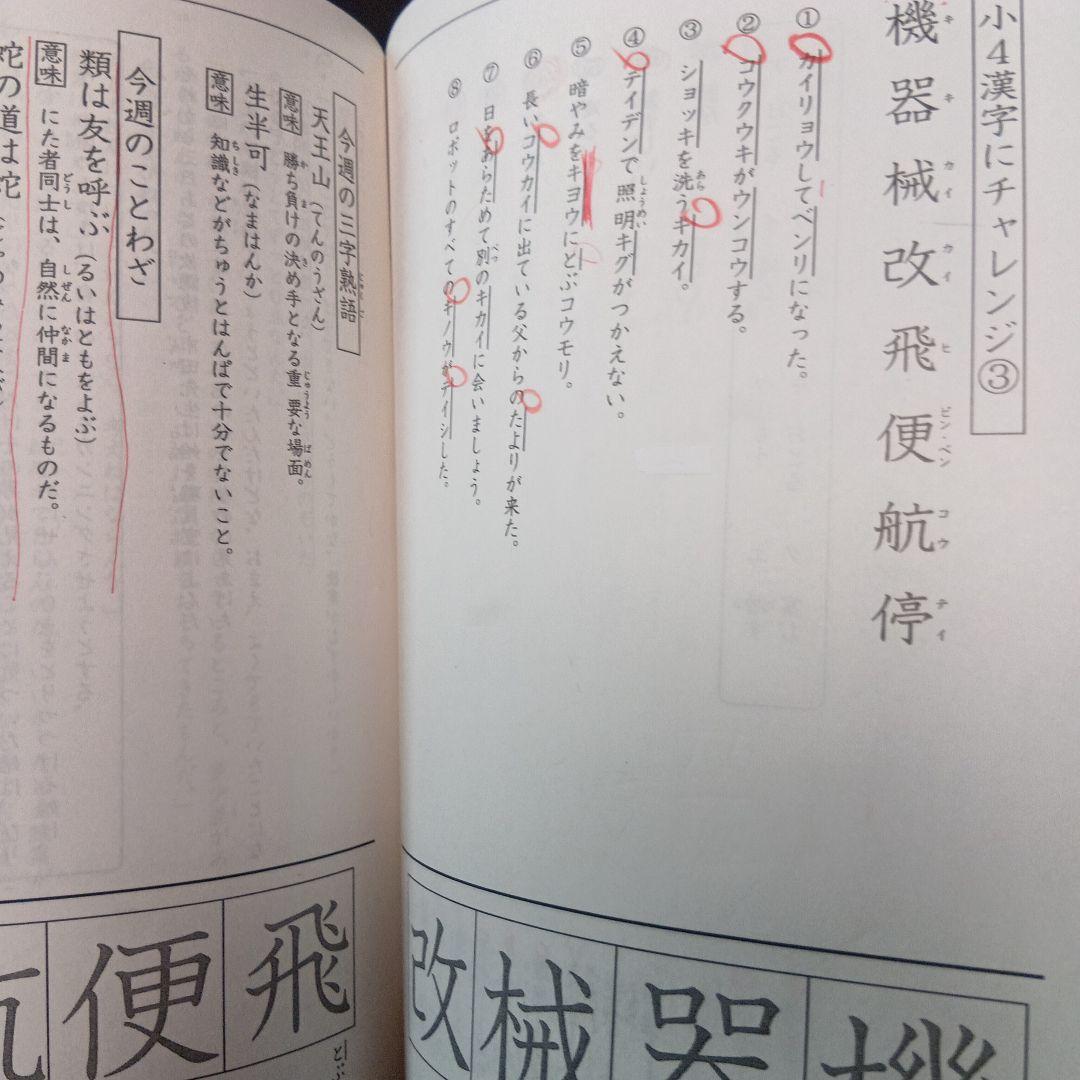 小４漢字にチャレンジ③
機 器 械 改 飛 便 航 停
キ キ カイ カイ ヒ ビン・ベン コウ テイ
① カイリョウしてベンリになった。
② コウクウキがウンコウする。
③ ショッキを洗うキカイ。
あら
④ テイデンで照明キグがつかえない。
しょうめい
⑤ 暗やみをキヨウにとぶコウモリ。
⑥ 長いコウカイに出ている父からのたよりが来た。
⑦ 日をあらためて別のキカイに会いましょう。
べつ
⑧ ロボットのすべてのキノウがテイシした。
改 械 器 機
今週の三字熟語
天王山（てんのうざん）
意味 勝ち負けの決め手となる重要な場面。
か ま き じゅうよう ばめん
生半可（なまはんか）
意味 知識などがちゅうとはんぱで十分でないこと。
ちしき
今週のことわざ
類は友を呼ぶ（るいはともをよぶ）
意味 にた者同士は、自然に仲間になるものだ。
どうし しぜん なかま
蛇の道は蛇
飛 便 航
とぶ